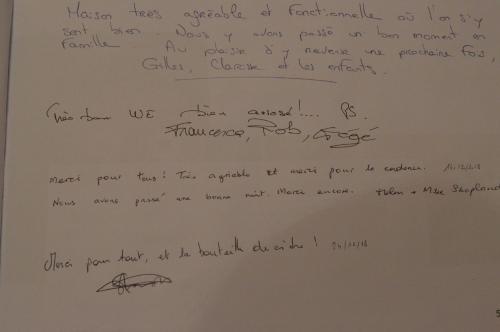 Maison très agréable et fonctionnelle où l'on s'y
sent bien. Nous y avons passé un bon moment en
famille Au plaisir d'y revenir une prochaine fois,
Gilles, Clarisse et les enfants.
Très bon WE bien arrosé!... PS.
Francesca, Rob,
Merci pour tous! Très agréable et merci pour le cadeau.
Nous avons passé une bonne nuit. Merci encore.
Merci pour tout, et la bouteille de cidre!